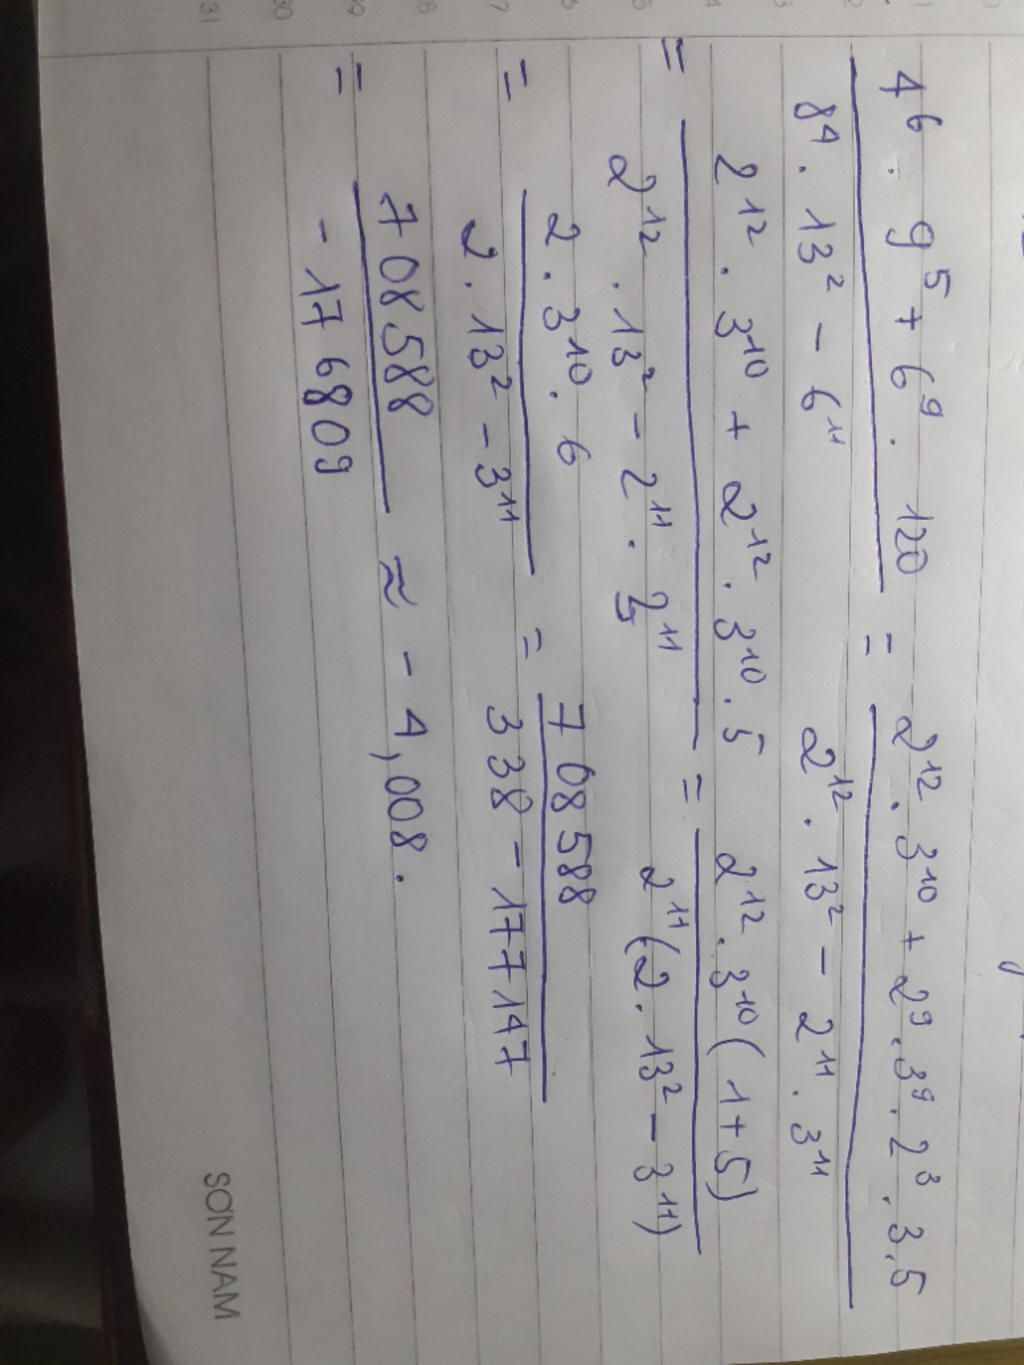 4⁶ . 9⁵ + 6⁹ . 120 / 8⁴ . 13² - 6¹¹ = 2¹² . 3¹⁰ + 2⁹ . 3⁹ . 2³ . 3 . 5 / 2¹² . 13² - 2¹¹ . 3¹¹
= 2¹² . 3¹⁰ + 2¹² . 3¹⁰ . 5 / 2¹² . 13² - 2¹¹ . 3¹¹ = 2¹² . 3¹⁰ (1 + 5) / 2¹¹ (2 . 13² - 3¹¹)
= 2 . 3¹⁰ . 6 / 2 . 13² - 3¹¹ = 708588 / 338 - 177147
= 708588 / - 176809 ≈ - 4,008 .
SƠN NAM
1 2 3 4 5 6 7 8 29 30 31